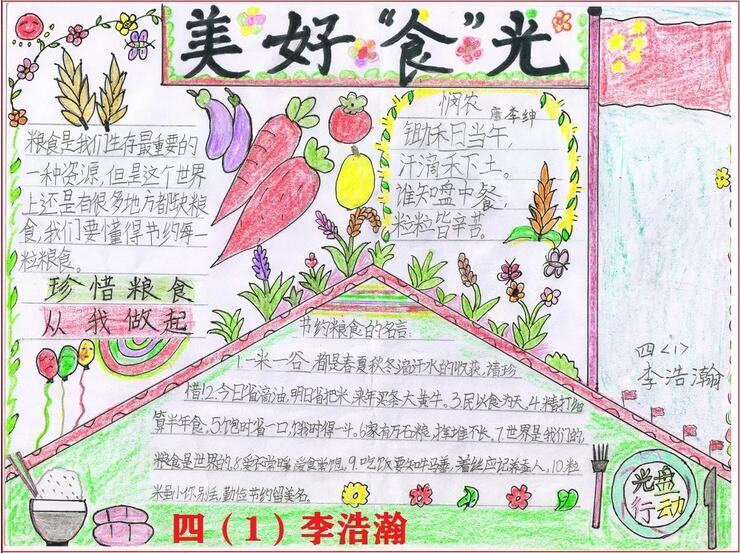 美好“食”光
粮食是我们生存最重要的
一种资源,但是这个世界
上还是有很多地方都缺粮
食,我们要懂得节约每一
粒粮食。
珍惜粮食
从我做起
悯农
唐 李绅
锄禾日当午,
汗滴禾下土。
谁知盘中餐,
粒粒皆辛苦。
节约粮食的名言:
1.一米一谷,都是春夏秋冬滴汗水的收获,请珍
惜!2.今日省滴油,明日省把米,来年买条大黄牛。3.民以食为天。4.精打细
算半年食。5.饱时省一口,饿时得一斗。6.家有万石粮,挥堆不长。7.世界是我们的,
粮食是世界的。8.爱衣常暖,爱食常饱。9.吃饭要知牛马善,着丝应记养蚕人。10.粒
米虽小你别丢,勤俭节约留美名。
四<1>
李浩瀚
光盘
行动
四(1)李浩瀚